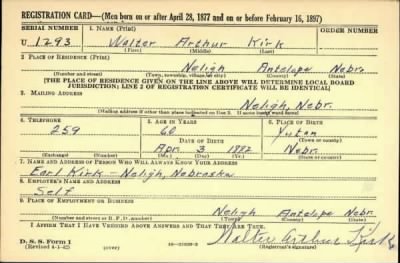 REGISTRATION CARD—(Men born on or after April 28, 1877 and on or before February 16, 1897)
SERIAL NUMBER 1. NAME (Print) ORDER NUMBER
U 1293 Walter Arthur Kirk
(First) (Middle) (Last)
2. PLACE OF RESIDENCE (Print)
Neligh Antelope Nebr.
(Number and street) (Town, township, village, or city) (County) (State)
[THE PLACE OF RESIDENCE GIVEN ON THE LINE ABOVE WILL DETERMINE LOCAL BOARD
JURISDICTION; LINE 2 OF REGISTRATION CERTIFICATE WILL BE IDENTICAL]
3. MAILING ADDRESS
Neligh, Nebr.
[Mailing address if other than place indicated on line 2. If same insert word same]
4. TELEPHONE 5. AGE IN YEARS 6. PLACE OF BIRTH
259 60 Yutan
DATE OF BIRTH (Town or county)
Apr. 3 1882 Nebr.
(Exchange) (Number) (Mo.) (Day) (Yr.) (State or country)
7. NAME AND ADDRESS OF PERSON WHO WILL ALWAYS KNOW YOUR ADDRESS
Earl Kirk - Neligh, Nebraska
8. EMPLOYER'S NAME AND ADDRESS
Self
9. PLACE OF EMPLOYMENT OR BUSINESS
Neligh Antelope Nebr.
(Number and street or R. F. D. number) (Town) (County) (State)
I AFFIRM THAT I HAVE VERIFIED ABOVE ANSWERS AND THAT THEY ARE TRUE.
D. S. S. Form 1
(Revised 4-1-42) (over) Walter Arthur Kirk
(Registrant's signature)